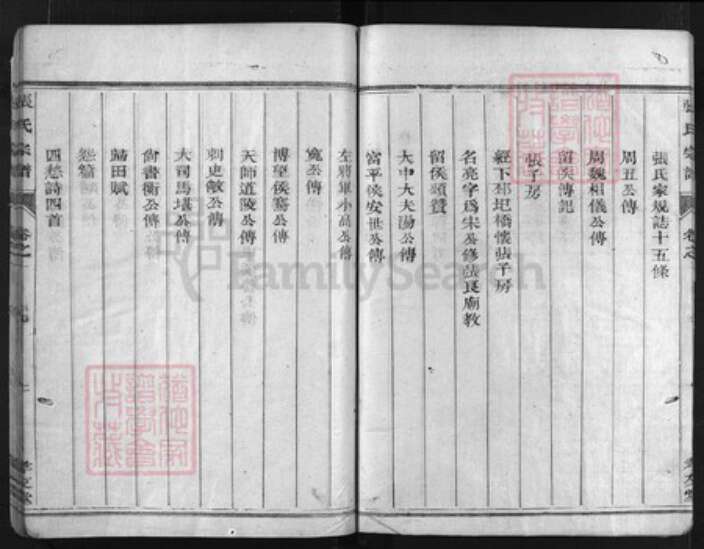 張氏家規誌十五條
周丑公傳
周魏相儀公傳
留侯傳記
張子房
經下邳圯橋懷張子房
名亮字爲宋公修張良廟教
留侯頌贊
大中大夫湯公傳
富平侯安世公傳
左將軍小高公傳
寬公傳
博望侯騫公傳
天師道陵公傳
刺史敞公傳
大司馬堪公傳
尚書衡公傳
歸田賦
怨篇
四愁詩四首
張氏宗譜
卷之
張氏宗譜
卷之
孝友堂
FamilySearch